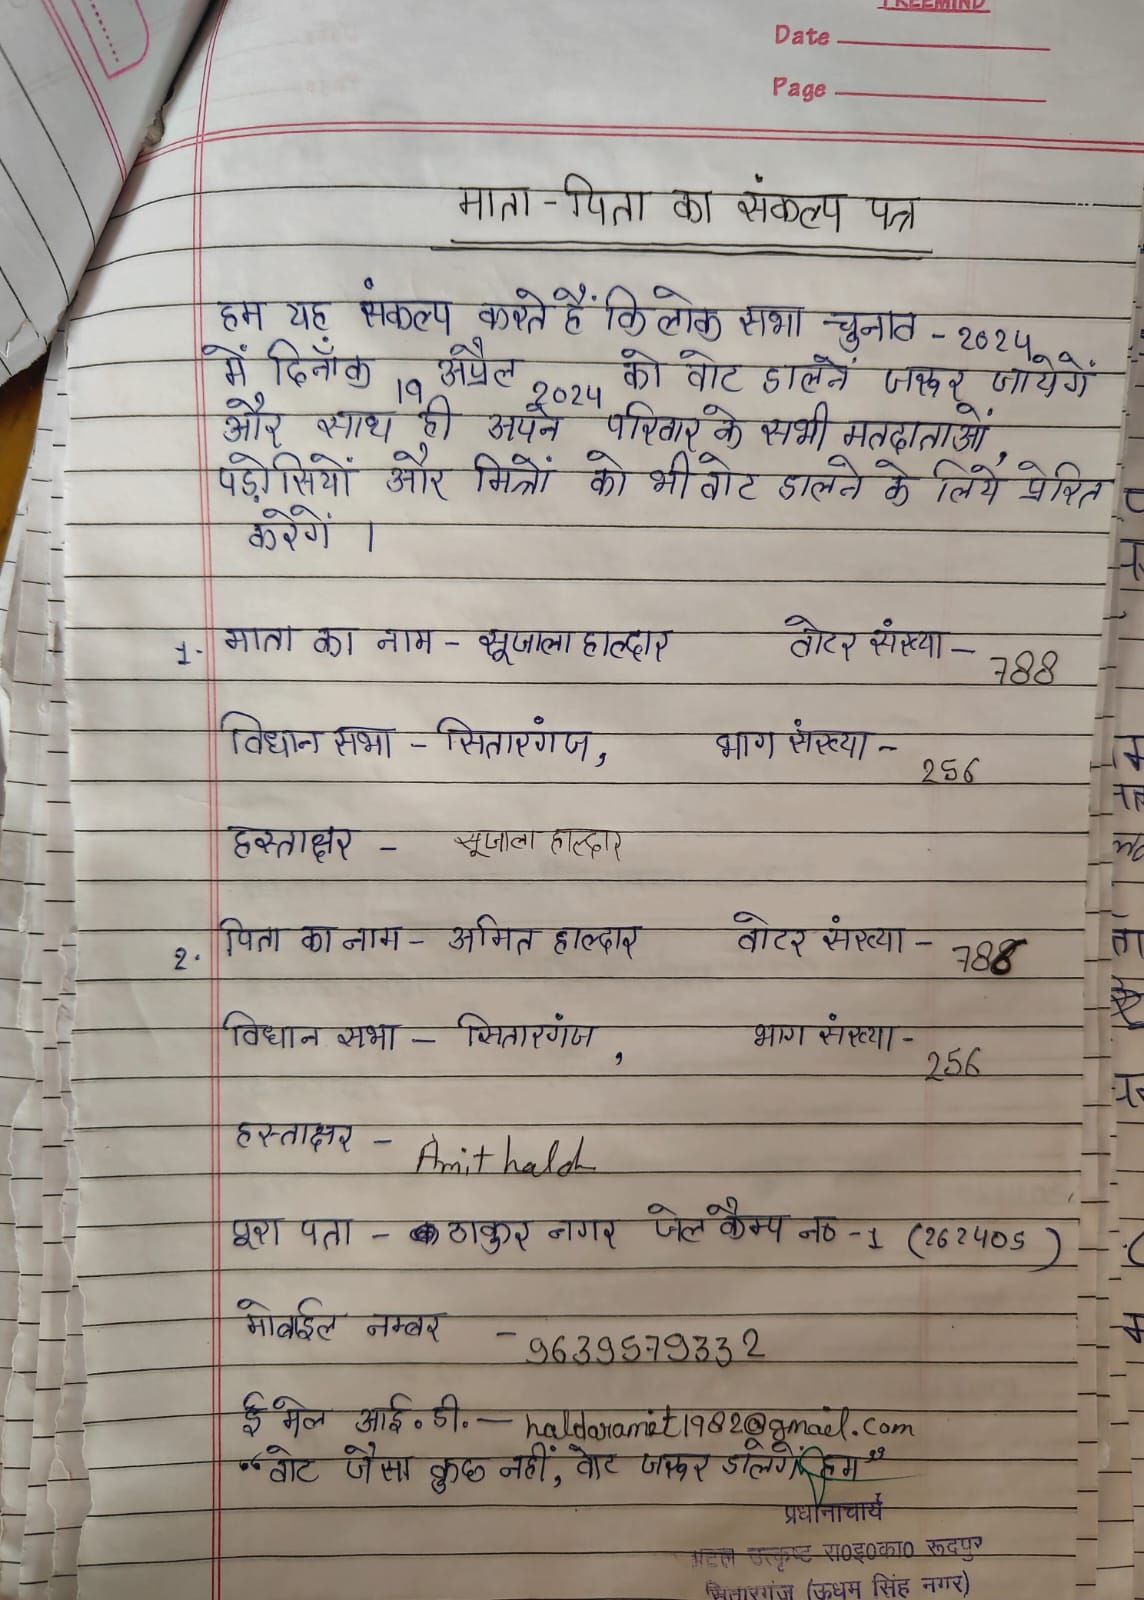 FREEMIND
Date
Page
माता-पिता का संकल्प पत्र
हम यह संकल्प करते हैं कि लोक सभा चुनाव - 2024
में दिनाँक 19 अप्रैल 2024 को वोट डालनें जरूर जायेगें
और साथ ही अपने परिवार के सभी मतदाताओं,
पड़ोसियों और मित्रों को भी वोट डालने के लिये प्रेरित
करेगें ।
1. माता का नाम - सूजाला हाल्दार वोटर संख्या - 788
विधान सभा - सितारगंज, भाग संख्या - 256
हस्ताक्षर - सूजाला हाल्दार
2. पिता का नाम - अमित हाल्दार वोटर संख्या - 788
विधान सभा - सितारगंज, भाग संख्या - 256
हस्ताक्षर - Amit hald
पूरा पता - ठाकुर नगर जेल कैम्प न० -1 (262405)
मोबाईल नम्बर - 9639579332
ई मेल आई.डी. - haldaramit1982@gmail.com
"वोट जैसा कुछ नहीं, वोट जरूर डालेगें हम"
प्रधानाचार्य
अटल उत्कृष्ट रा०इ०का० रूदपुर
सितारगंज (ऊधम सिंह नगर)